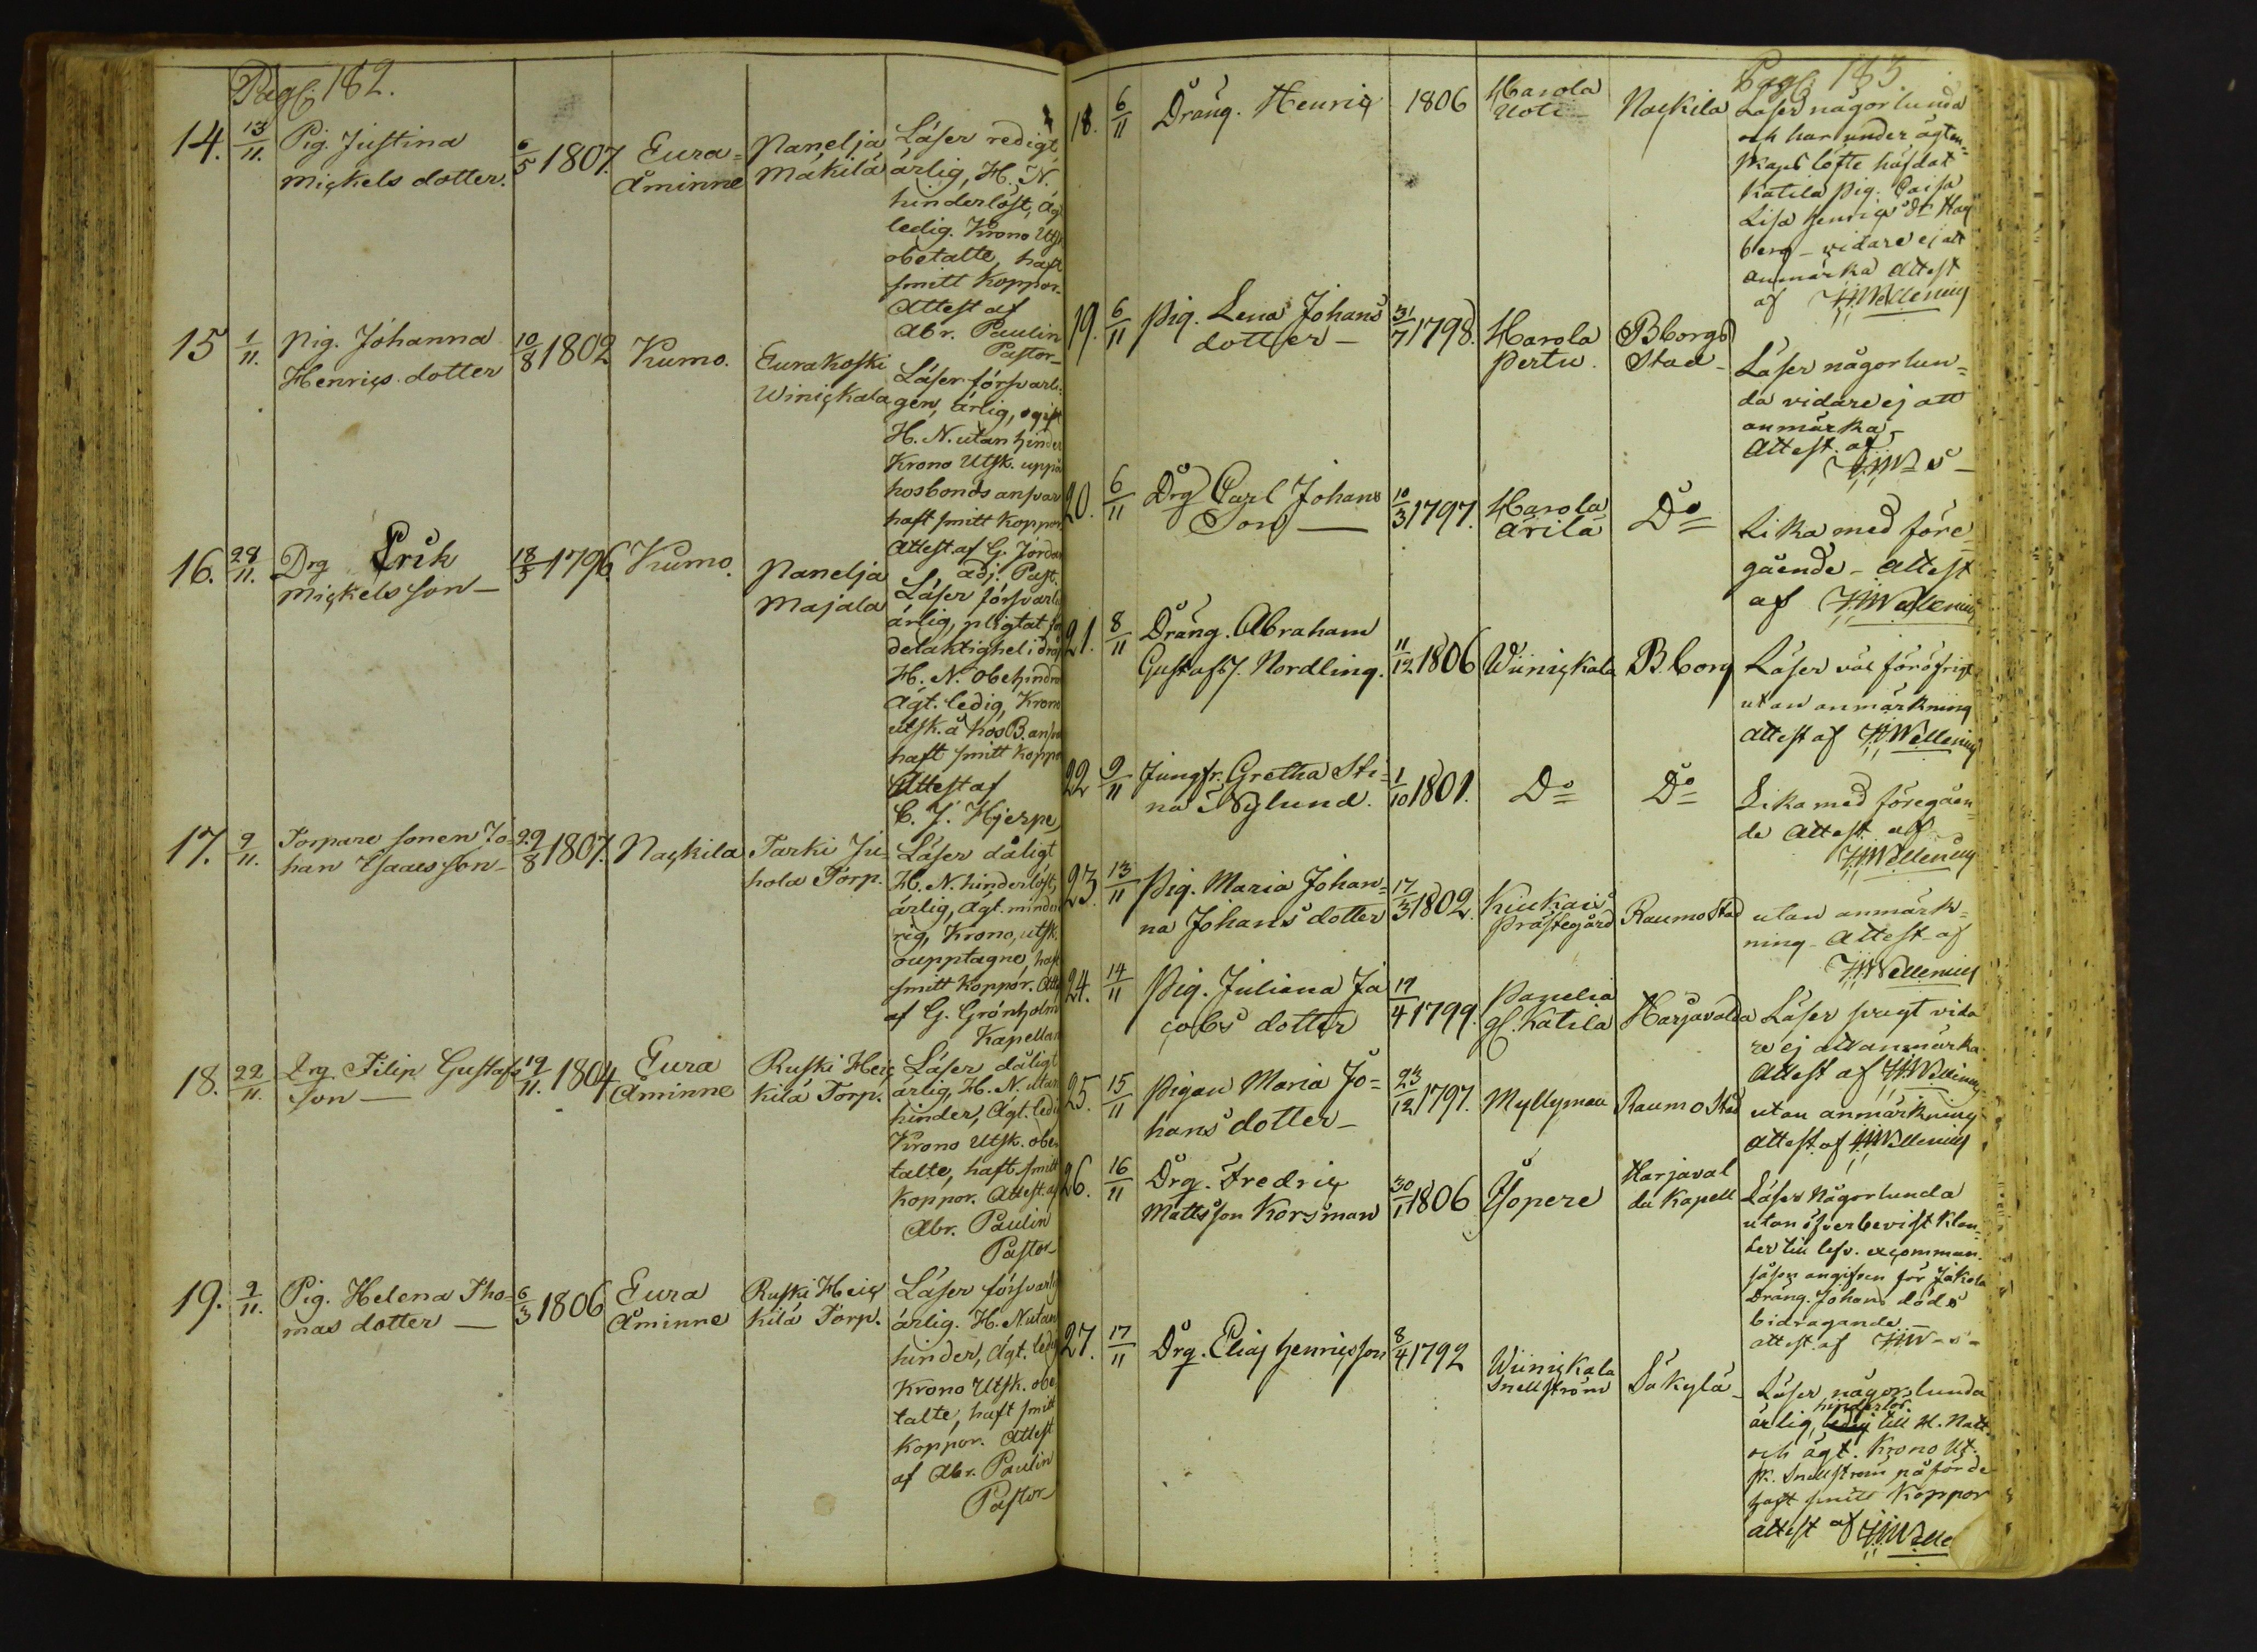 Pag: 182.
14. 13/11. Pig. Justina
Mickels dotter. 6/5 1807. Eura-
Åminne
Panelja
Mäkilä
Läser redigt
ärlig, H. N.
hinderlöst, Ägt
ledig. Krono Utsk
obetalte, haft
smitt koppor-
Attest af
Abr. Paulin
Pastor-
15 1/11. Pig. Johanna
Henrics dotter 10/8 1802 Kumo.
Eurakoski
Winickala
Läser försvarli-
gen, ärlig, ogift
H. N. utan hinder
Krono Utsk. uppå
hosbonds ansvar
haft smitt koppor
Attest af G. Jordan
adj. Past.
16. 28/11. Drg Erik
Mickelsson- 18/5 1796. Kumo.
Panelja
Majala
Läser försvarli
ärlig, pligtat för
delaktighet i
H. N. obehindra
Ägt. ledig, Krono
utsk. å hosB. ansva
haft smitt koppo
Attest af
C. J. Hjerpe
17. 9/11. Torpare sonen Jo-
han Isaacsson- 29/8 1807. Nackila
Tarki Ju-
hola Torp.
Läser dåligt
H. N. hinderlöst,
ärlig, Ägt. minder
rig, Krono, utsk.
oupptagne, haft
smitt koppor. Atte
af G. Grönholm
Kapellan
18. 22/11. Drg Filip Gustafs
son- 19/11. 1804
Eura
Åminne
Ruski Heic
kilä Torp.
Läser dåligt
ärlig, H. N. utan
hinder, Ägt. ledi
Krono Utsk. obe-
talte, haft smitt
koppor. Attest. af
Abr. Paulin
Pastor-
19. 9/11. Pig. Helena Tho-
mas dotter- 6/3 1806
Eura
Åminne
Ruski Heic
kilä Torp.
Läser försvarli
ärlig. H. N utan
hinder, Ägt. ledi
Krono Utsk. obe
talte, haft smitt
koppor. Attest
af Abr. Paulin
Pastor-
Pag: 183.
18. 6/11 Dräng. Henric 1806 Harola
Uoti- Nackila
Läser någorlunda
och har under ägten-
skaps löfte häfdat
Katila pig. Caisa
Lisa Henrics dr Hag
berg- vidare ej att
anmärka Attest
af HWellenius
19. 6/11 Pig. Lena Johans
dotter- 31/7 1798. Harola
Pertu.
BBorgs
Stad-
Läser någorlun-
da vidare ej att
anmärka-
Attest. af
20. 6/11 Drg Carl Johans
Son- 10/3 1797. Harola
Arila Do
Lika med före-
gående- Attest
af HWallenius
21. 8/11 Dräng. Abraham
Gustafs s. Nordling. 11/12 1806 Wiinickala B.borg
Läser väl föröfrigt
utan anmärkning
Attest af HWellenius
22 9/11 Jungfr. Gretha Sti-
na Nylund. 1/10 1801. Do Do
Lika med föregåen-
de Attest. af
HWellenius
23. 13/11 Pig. Maria Johan-
na Johans dotter 17/3 1802. Kiukais
Prästegård Raumo Stad
utan anmärk-
ning- Attest- af
HWellenius
24. 14/11 Pig. Juliana Ja
cobs dotter 19/4 1799. Panelia
gl. Katila Harjavalda
Läser svagt vida
re ej att anmärka.
Attest af HWellenius
25. 15/11 Pigan Maria Jo-
hans dotter- 23/12 1797. Myllymaa Raumo Stad
utan anmärkning-
Attest. af HWellenius
26. 16/11 Drg. Fredric
Mattsson Korsman 30/1 1806 Yopere Harjaval
da Kapell
Läser Någorlunda
utan öfverbevist klan-
der till lefv.
angifven för Jakola
Dräng. Johans döds
bidragande-
attest. af
27. 17/11 Drg. Elias Henricsson 8/4 1792 Wiinickala
Snellström Säkylä-
Läser någorlunda
hinderlös.
ärlig, ledig till H. Natt.
och ägt. Krono Ut-
sk. Snellström påförde
haft smitt Koppor
attest af